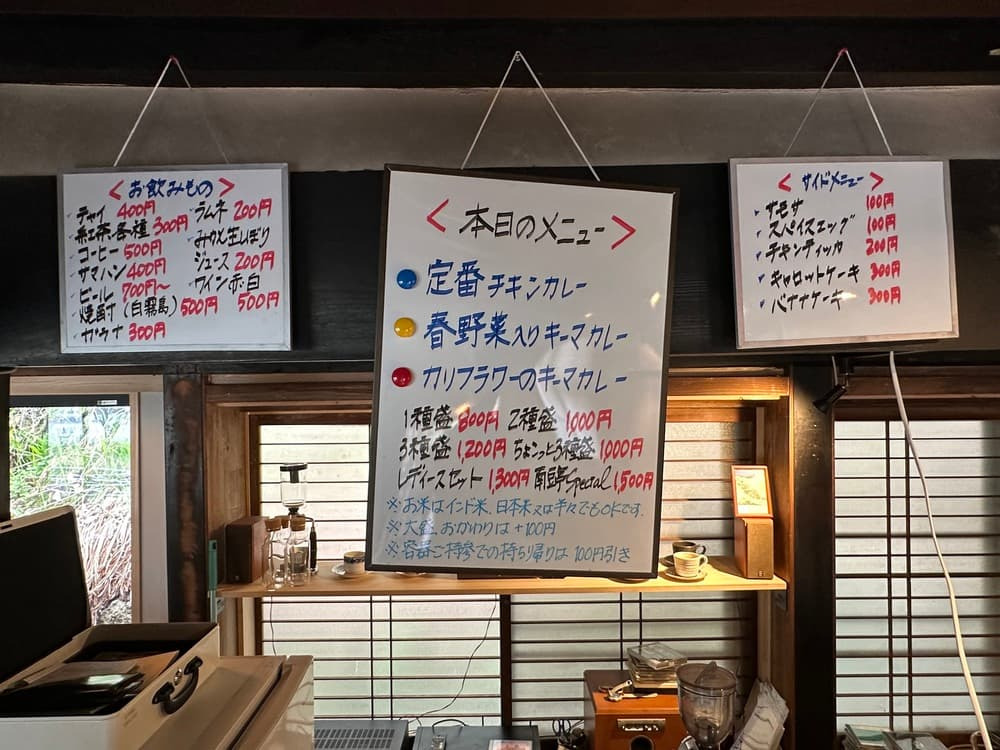 < お飲みもの >
チャイ 400円
紅茶・各種 300円
コーヒー 500円
サマハン 400円
ビール 700円〜
焼酎(白霧島) 500円
ガラナ 300円
ラムネ 200円
みかん生しぼり
ジュース 200円
ワイン 赤・白
500円
< 本日のメニュー >
定番 チキンカレー
春野菜入りキーマカレー
カリフラワーのキーマカレー
1種盛 800円 2種盛 1,000円
3種盛 1,200円 ちょこっと3種盛 1,000円
レディースセット 1,300円 Special 1,500円
※お米はインド米、日本米又は半々でもOKです。
※大盛、おかわりは+100円
※容器ご持参での持ち帰りは100円引き
< サイドメニュー >
サモサ 100円
スパイスエッグ 100円
チキンティッカ 200円
キャロットケーキ 300円
バナナケーキ 300円